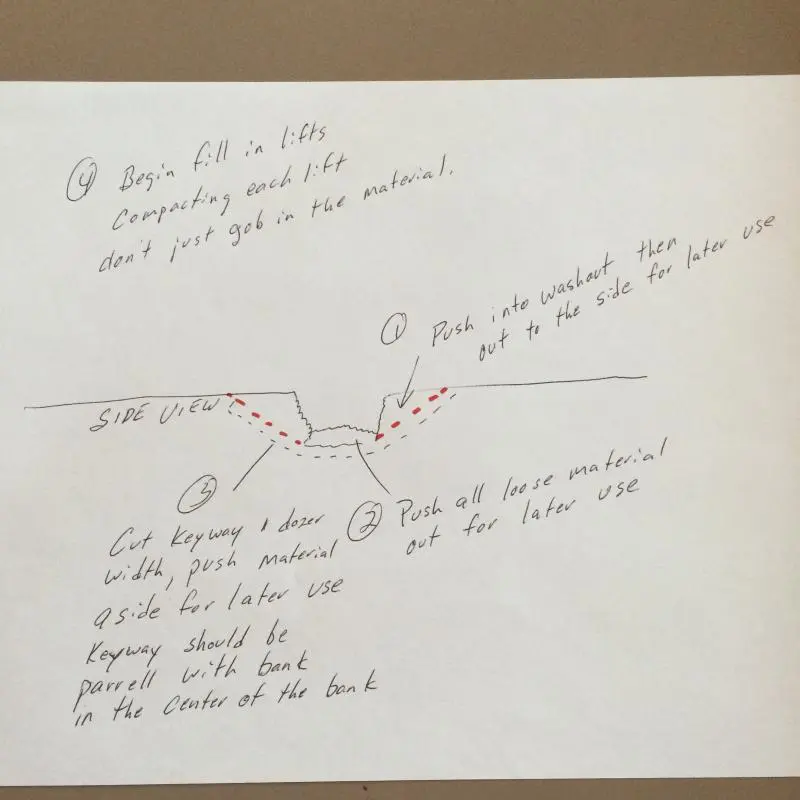 ④ Begin fill in lifts
Compacting each lift
don't just gob in the material.
① Push into washout then
out to the side for later use
SIDE VIEW
③
Cut Keyway 1 dozer
width, push material
aside for later use
Keyway should be
parrell with bank
in the center of the bank
② Push all loose material
out for later use